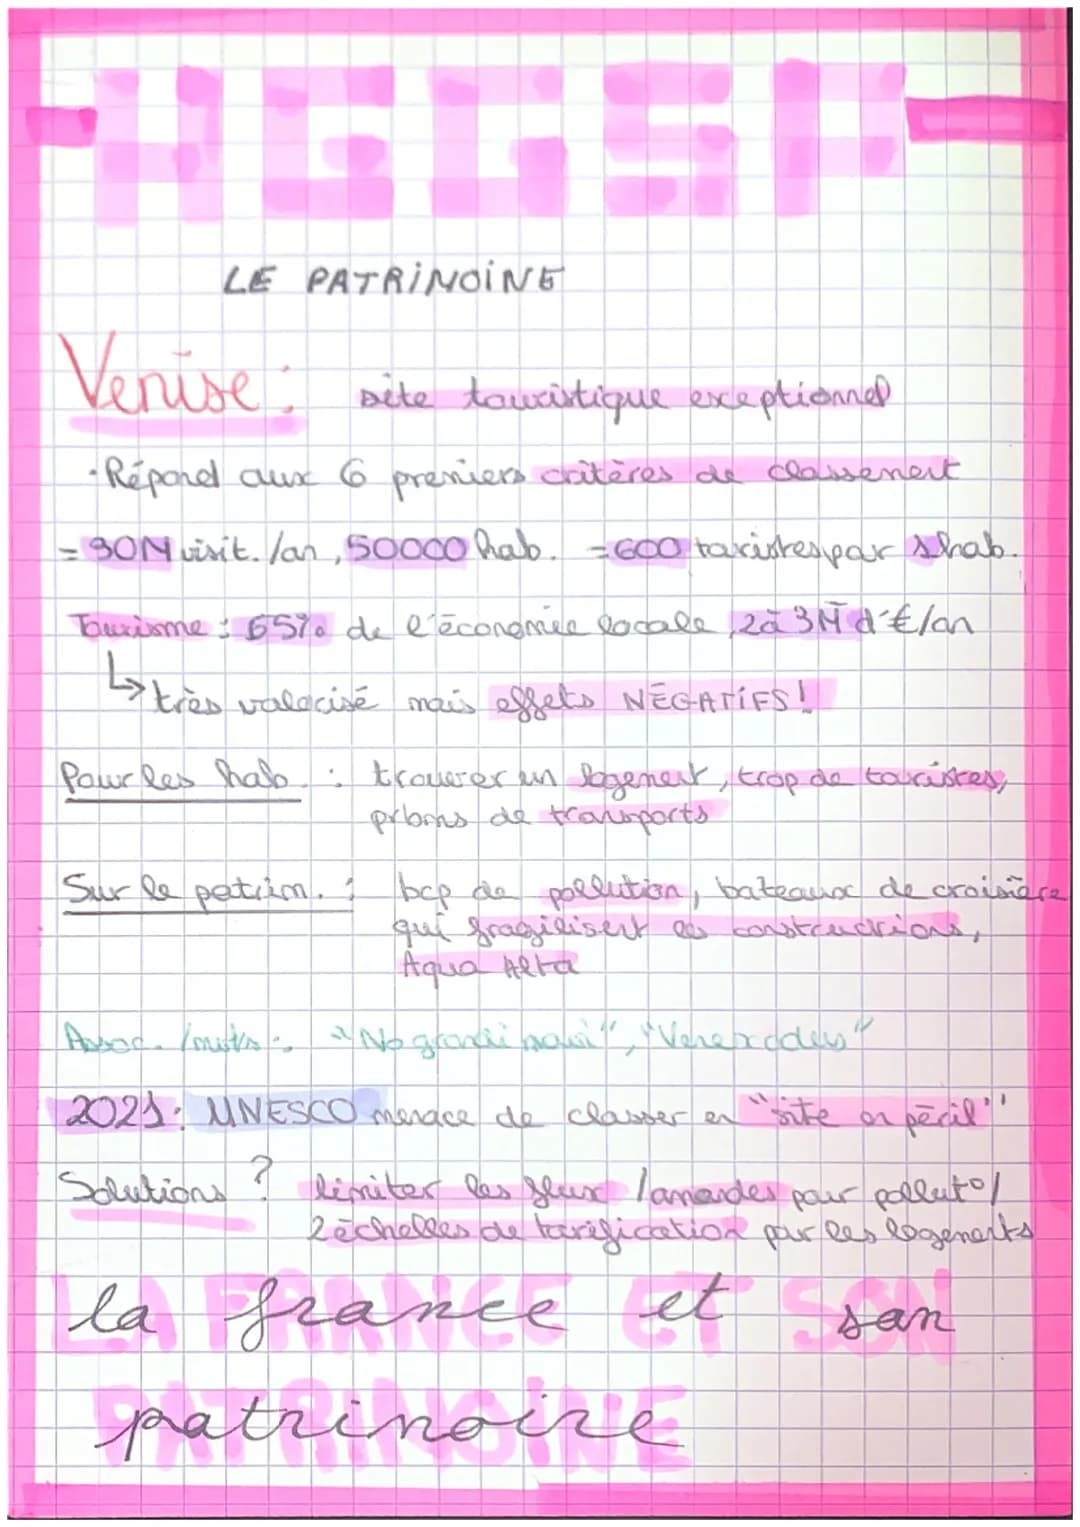 HGGSP
LE PATRIMOINE
Venise : site touristique exeptionnel
· Répond aux 6 premiers critères de classement
= 30M visit. /an, 50000 hab. = 600 touristes par 1 hab.
Tourisme : 65% de l'économie locale, 2 à 3M d'€/an
↳ très valorisé mais effets NÉGATIFS !
Pour les hab. : trouver un logement, trop de touristes,
prbms de transports
Sur le patrim. : bcp de pollution, bateaux de croisière
qui fragilisent les constructions,
Aqua Alta
Assoc. /mvts : "No grandi navi", "Venexodus"
2021 : UNESCO menace de classer en "site en péril"
Solutions ? limiter les flux /amendes pour pollut° /
2 échelles de tarification pour les logements
LA FRANCE ET SON
la france et son
PATRIMOINE
patrimoine